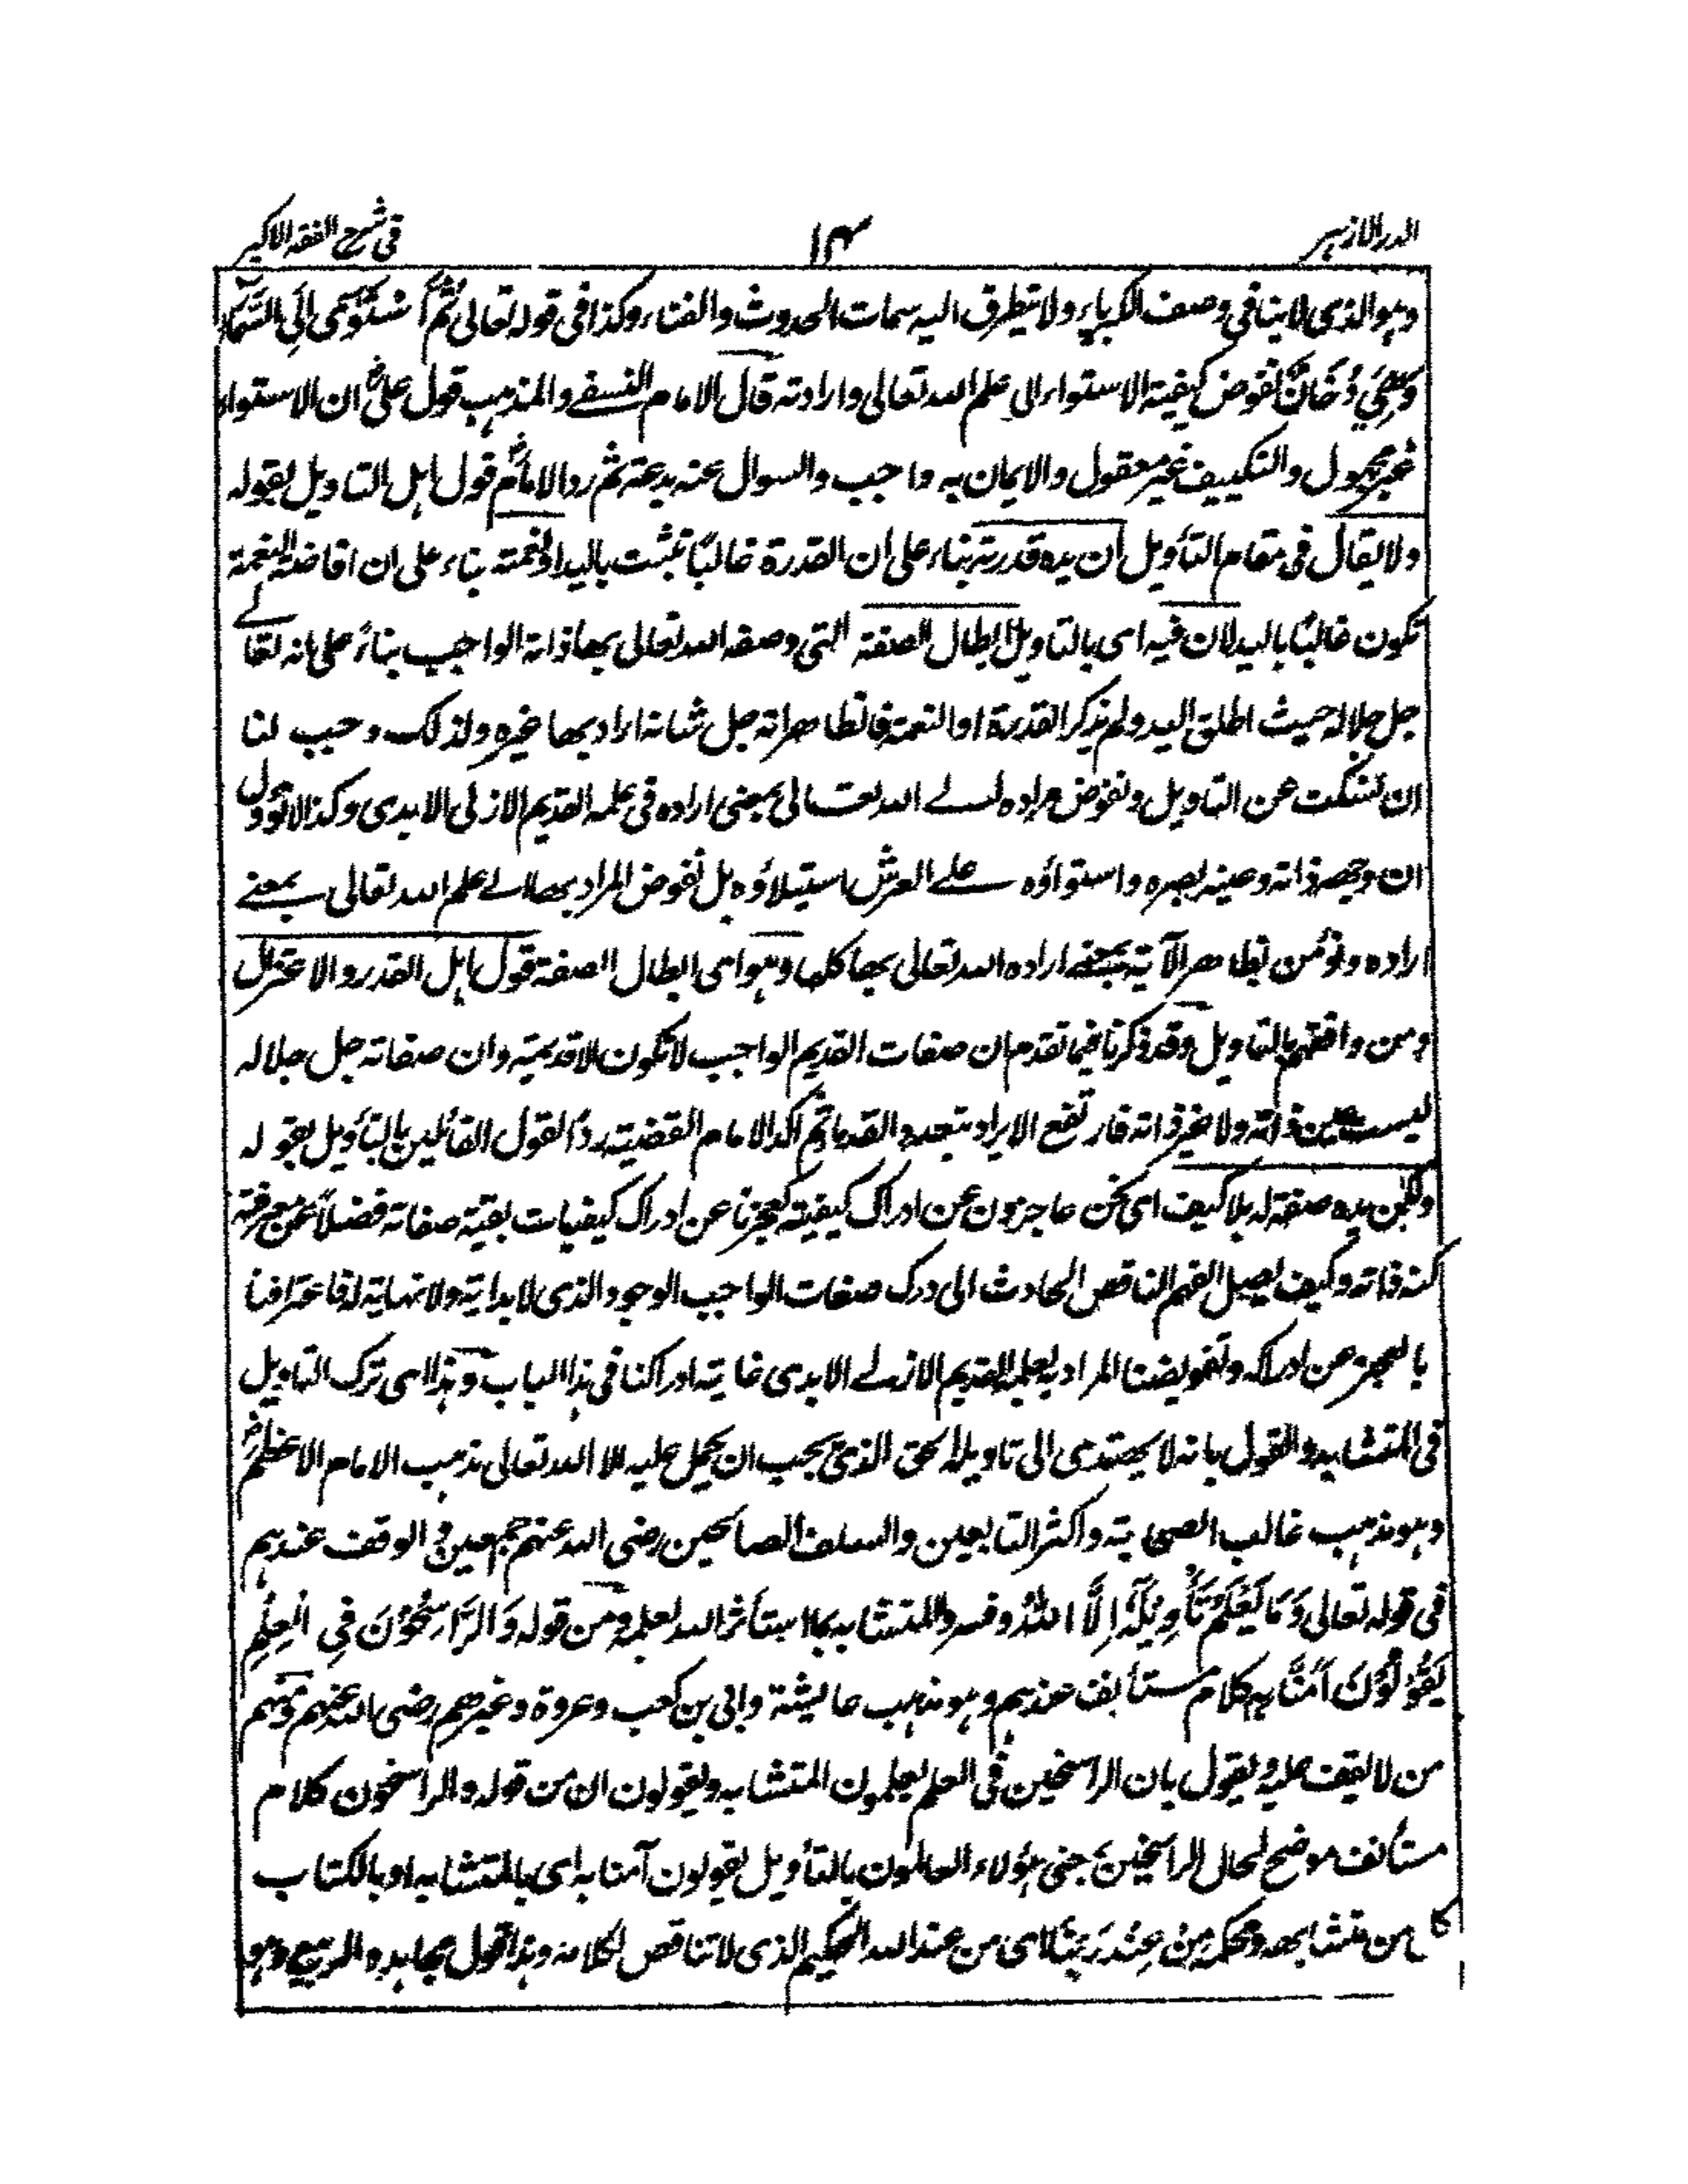 الدر الازہر ۱۴ فی شرح الفقہ الاکبر
وہو الذی لا ینافی وصف الکبریاء ولا یتطرق الیہ سمات الحدوث والفناء وکذا فی قولہ تعالی ثُمَّ اسْتَوٰی اِلَی السَّمَاءِ
وَهِيَ دُخَانٌ نفوض کیفیۃ الاستواء الی علم اللہ تعالی وارادتہ قال الامام النسفے والمذہب قول علیؓ ان الاستواء
غیر مجہول والتکییف غیر معقول والایمان بہ واجب والسوال عنہ بدعۃ ثم رد الامامؒ قول اہل التاویل بقولہ
ولا یقال فی مقام التأویل ان یدہ قدرتہ بناء علی ان القدرۃ غالبًا تثبت بالید او نعمتہ بناء علی ان افاضۃ النعمۃ
تکون غالبًا بالید لان فیہ ای بالتاویل ابطال الصفۃ التی وصفہ اللہ تعالی بھا ذاتہ الواجب بناءً علی انہ تعالے
جل جلالہ حیث اطلق الید ولم یذکر القدرۃ او النعمۃ فالظاھر انہ جل شانہ اراد بھا غیرہ ولذلک وجب لنا
ان نسکت عن التاویل ونفوض مرادہ لے اللہ تعالی بمعنی ارادہ فی علمہ القدیم الازلی الابدی وکذا لا نؤول
ان وجھہ ذاتہ وعینہ بصرہ واستواؤہ علے العرش استیلاؤہ بل نفوض المراد بھا الے علم اللہ تعالی بمعنے
ارادہ ونؤمن بظاھر الآیۃ بمعنے ارادہ اللہ تعالی بھا کلہا وہو ای ابطال الصفۃ قول اہل القدر والاعتزال
ومن وافقہم بالتاویل وقد ذکرنا فیما تقدم ان صفات القدیم الواجب لا تکون الا قدیمۃ وان صفاتہ جل جلالہ
لیست عین ذاتہ ولا غیر ذاتہ فارتفع الایراد بتعدد القدماء ثم اکد الامام القضیۃ ردًا لقول القائلین بالتأویل بقولہ
ولکن یدہ صفتہ لہ بلا کیف ای نحن عاجزون عن ادراک کیفیتہ کعجزنا عن ادراک کیفیات بقیۃ صفاتہ فضلاً عن معرفۃ
کنہ ذاتہ وکیف یصل الفہم الناقص الحادث الی درک صفات الواجب الوجود الذی لا بدایۃ ولا نہایۃ لہ فاعترافنا
بالعجز عن ادراکہ وتفویضنا المراد بہ لعلمہ القدیم الازلے الابدی غایۃ ادراکنا فی ہذا الباب وہذا ای ترک التاویل
فی المتشابہ والقول بانہ لا یھتدی الی تاویلہ الحق الذی یجب ان یحمل علیہ الا اللہ تعالی مذہب الامام الاعظمؒ
وہو مذہب غالب الصحابۃ واکثر التابعین والسلف الصالحین رضی اللہ عنہم اجمعین والوقف عندہم
فی قولہ تعالی وَمَا یَعْلَمُ تَأْوِیْلَہٗ اِلَّا اللہُ وفسروا المتشابہ بما استأثر اللہ بعلمہ ومن قولہ وَالرَّاسِخُوْنَ فِی الْعِلْمِ
یَقُوْلُوْنَ اٰمَنَّا بِہٖ کلام مستأنف عندہم وہو مذہب عائشۃ وابی بن کعب وعروۃ وغیرھم رضی اللہ عنہم ومنہم
من لا یقف علیہ ویقول بان الراسخین فی العلم یعلمون المتشابہ ویقولون ان من قولہ والراسخون کلام
مستأنف موضح لحال الراسخین بمعنی ہؤلاء العالمون بالتأویل یقولون آمنا بہ ای بالمتشابہ او بالکتاب
کل من متشابھہ ومحکمہ مِنْ عِنْدِ رَبِّنَا ای من عند اللہ الحکیم الذی لا تناقض لکلامہ وہذا قول مجاہد والربیع وہو